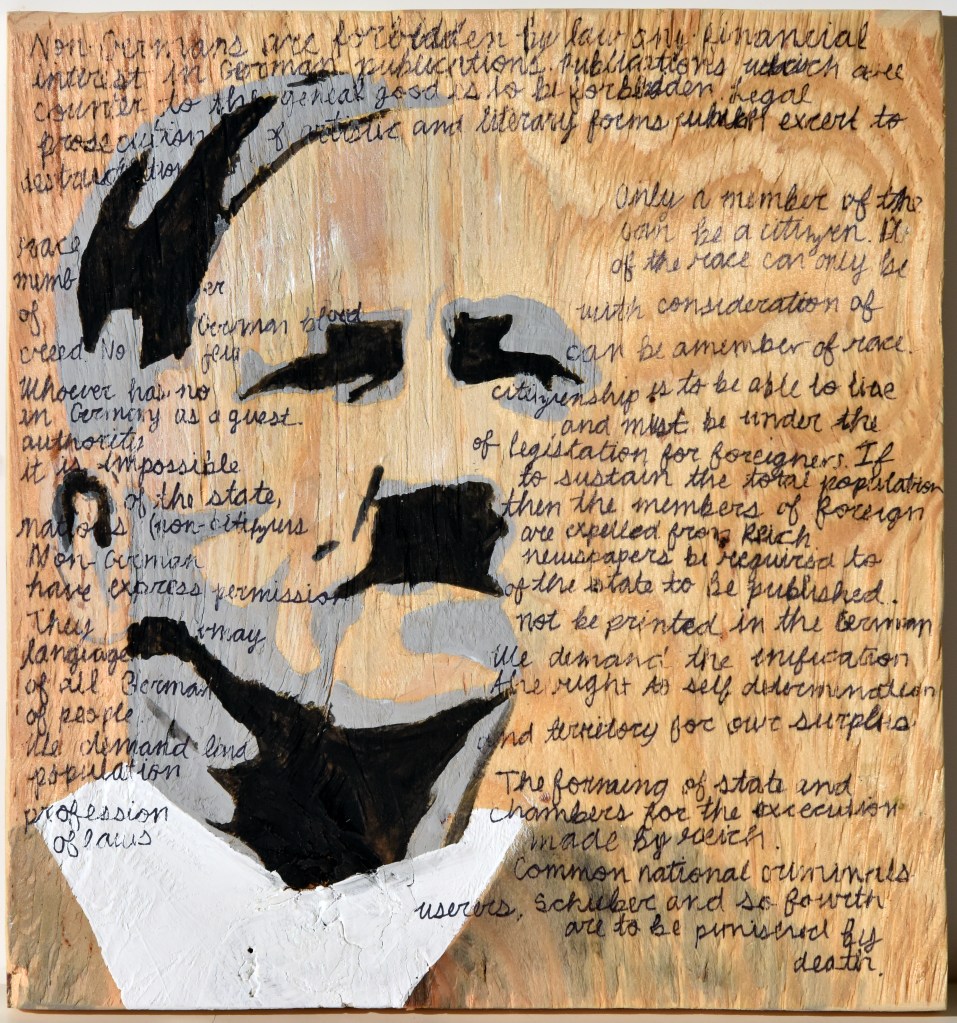 Non-Germans are forbidden by law any financial
interest in German publications. Publications which are
counter to the geneal good is to be forbidden. Legal
prosecution of artistic and literary forms which excert to
destruction
Only a member of the
race can be a citizen. A
member of the race can only be
of German blood with consideration of
creed. No jew can be a member of race.
Whoever has no citizenship is to be able to live
in Germany as a guest. and must be under the
authority of legistation for foreigners. If
it is impossible to sustain the total population
of the state, then the members of foreign
nations (non-citizens are expelled from Reich
Non-German newspapers be required to
have express permission of the state to be published.
They may not be printed in the German
language We demand the unification
of all German the right to self determination
of people.
We demand lind and territory for our surplus
population
The forming of state and
profession chambers for the excecution
of laws made by reich.
Common national criminals
userers, Schuber and so fourth
are to be punished by
death.